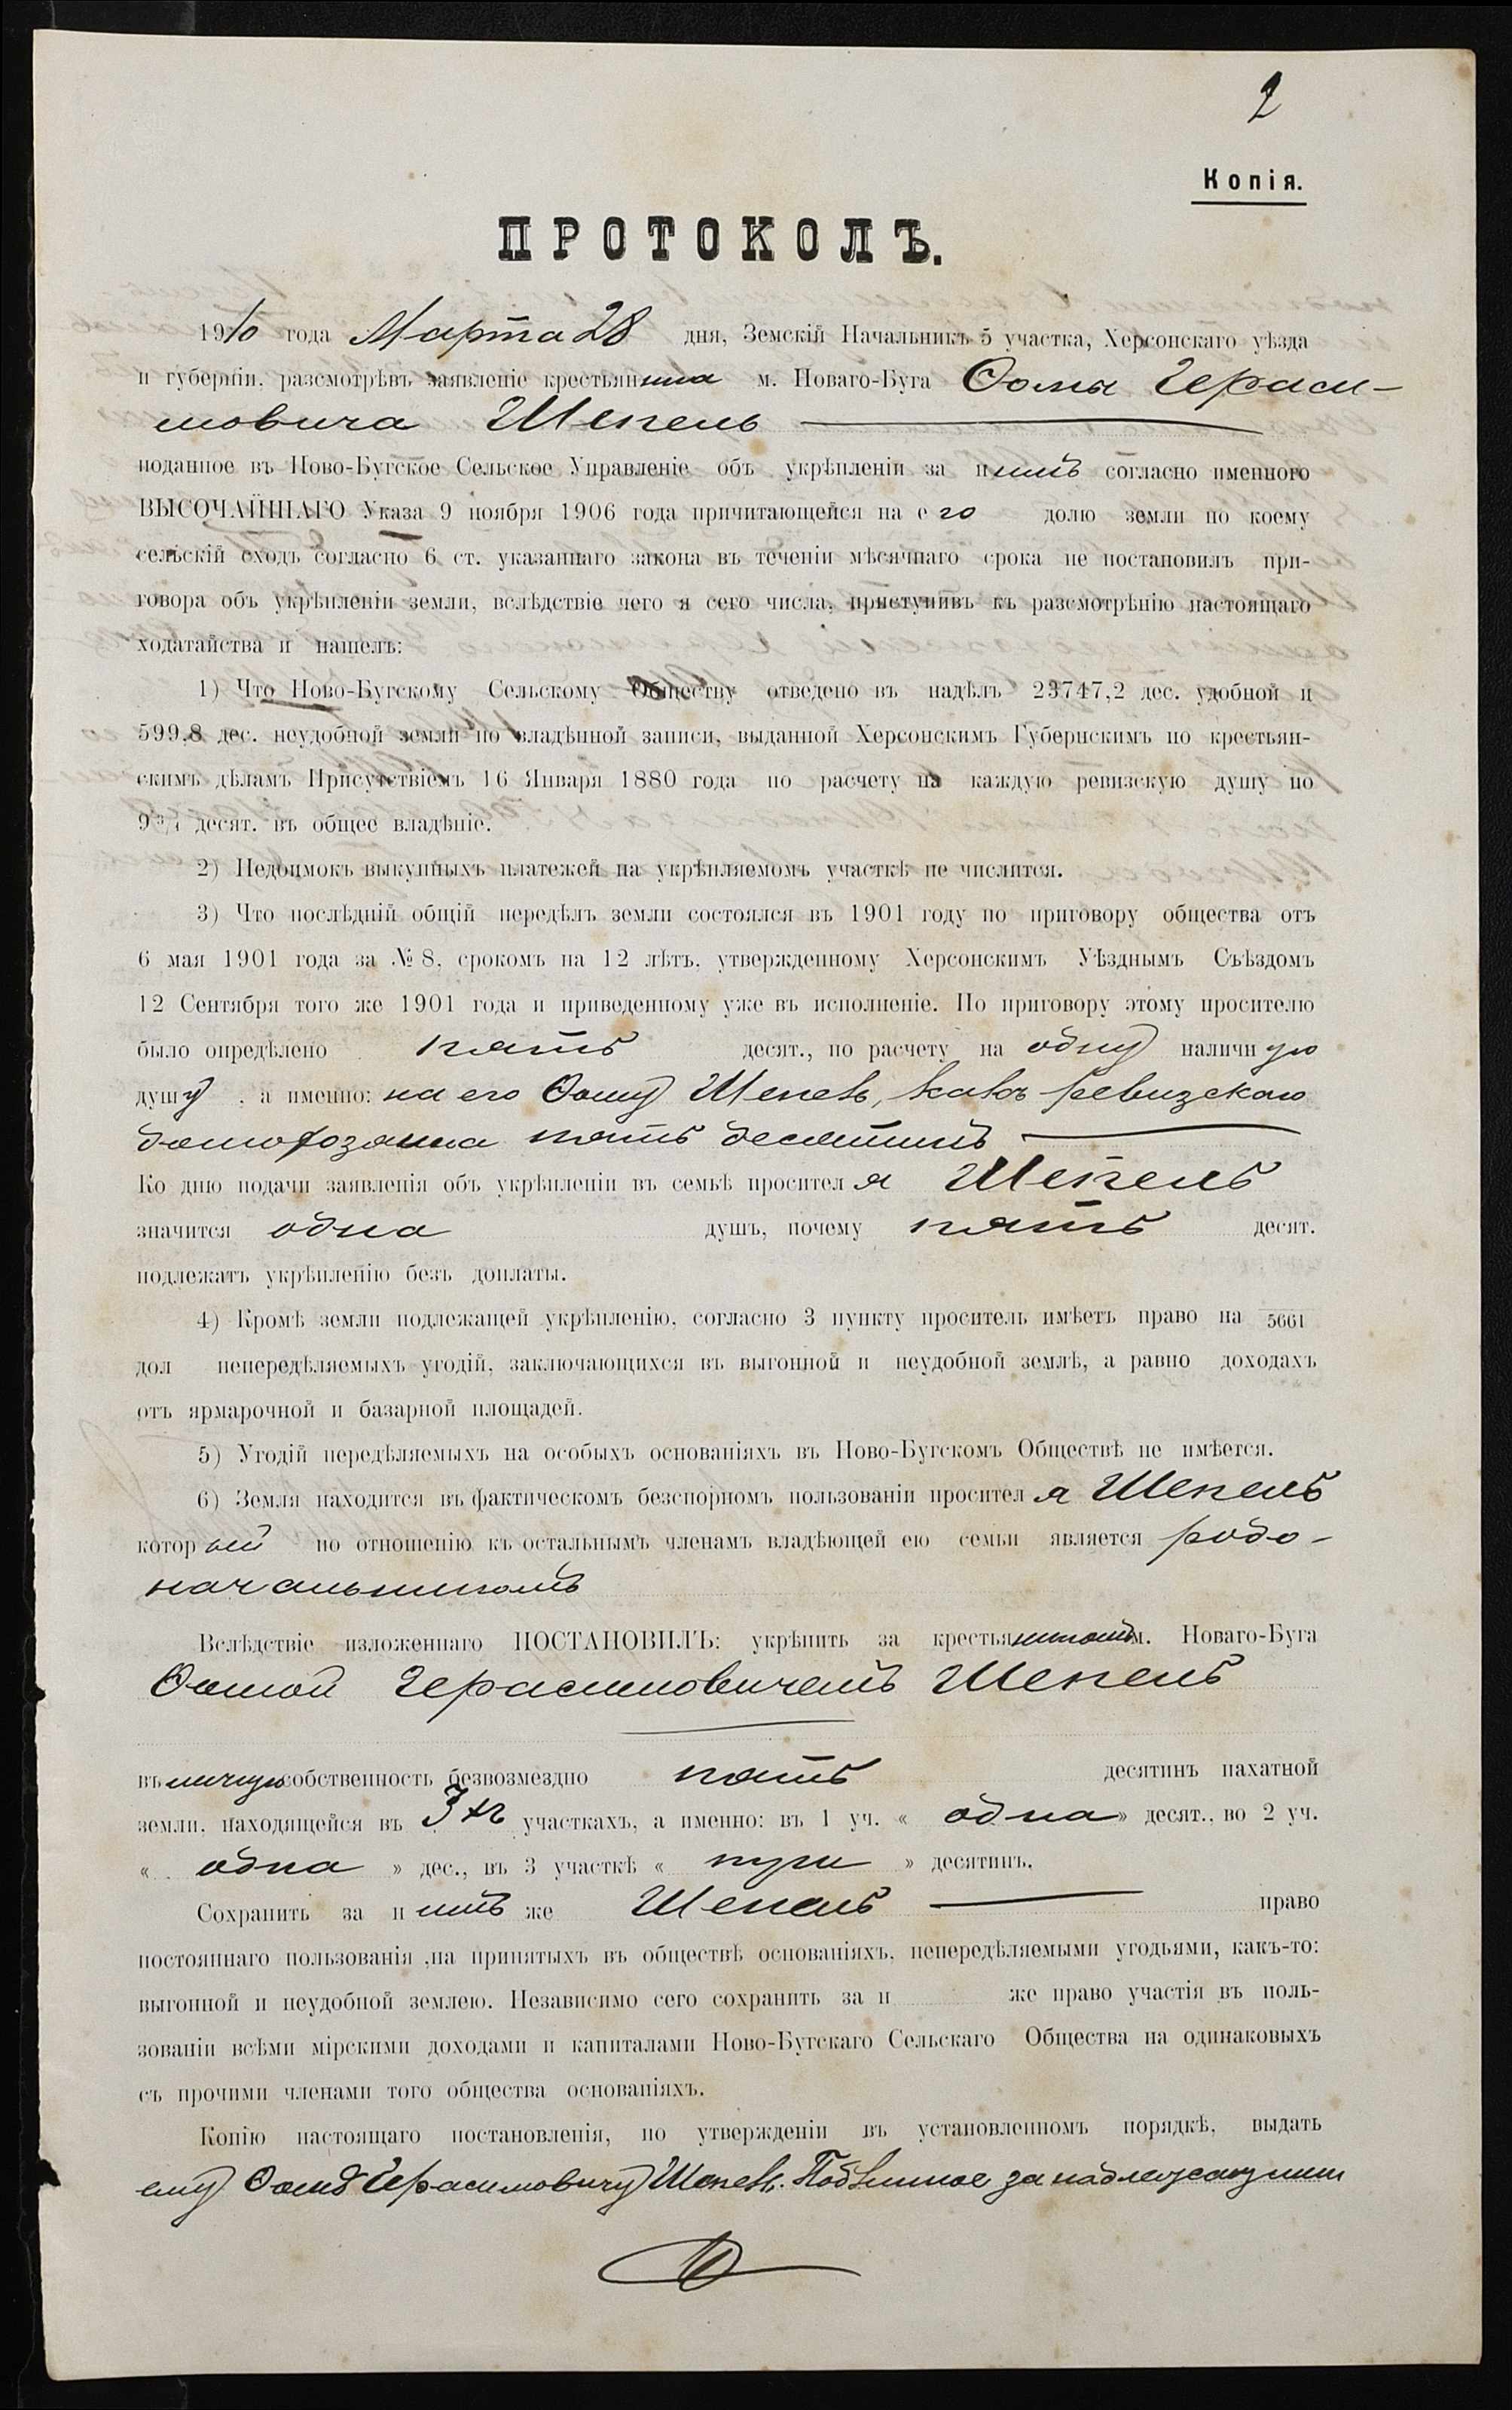 2
Копія.
ПРОТОКОЛЪ.
1910 года Марта 28 дня, Земскій Начальникъ 5 участка, Херсонскаго уѣзда
и губерніи, разсмотрѣвъ заявленіе крестьянина м. Новаго-Буга Ѳомы Гераси-
мовича Шепель
поданное въ Ново-Бугское Сельское Управленіе объ укрѣпленіи за нимъ согласно именного
ВЫСОЧАЙШАГО Указа 9 ноября 1906 года причитающейся на его долю земли по коему
сельскій сходъ согласно 6 ст. указаннаго закона въ теченіи мѣсячнаго срока не постановилъ при-
говора объ укрѣпленіи земли, вслѣдствіе чего я сего числа, приступивъ къ разсмотрѣнію настоящаго
ходатайства и нашелъ:
1) Что Ново-Бугскому Сельскому Обществу отведено въ надѣлъ 23747,2 дес. удобной и
599,8 дес. неудобной земли по владѣнной записи, выданной Херсонскимъ Губернскимъ по крестьян-
скимъ дѣламъ Присутствіемъ 16 Января 1880 года по расчету на каждую ревизскую душу по
9 3/4 десят. въ общее владѣніе.
2) Недоимокъ выкупныхъ платежей на укрѣпляемомъ участкѣ не числится.
3) Что послѣдній общій передѣлъ земли состоялся въ 1901 году по приговору общества отъ
6 мая 1901 года за № 8, срокомъ на 12 лѣтъ, утвержденному Херсонскимъ Уѣзднымъ Съѣздомъ
12 Сентября того же 1901 года и приведенному уже въ исполненіе. По приговору этому просителю
было опредѣлено пять десят., по расчету на одну наличную
душу, а именно: на его Ѳому Шепель, какъ ревизскаго
домохозяина пять десятинъ
Ко дню подачи заявленія объ укрѣпленіи въ семьѣ просителя Шепель
значится одна душъ, почему пять десят.
подлежатъ укрѣпленію безъ доплаты.
4) Кромѣ земли подлежащей укрѣпленію, согласно 3 пункту проситель имѣетъ право на 5661
дол непередѣляемыхъ угодій, заключающихся въ выгонной и неудобной землѣ, а равно доходахъ
отъ ярмарочной и базарной площадей.
5) Угодій передѣляемыхъ на особыхъ основаніяхъ въ Ново-Бугскомъ Обществѣ не имѣется.
6) Земля находится въ фактическомъ безспорномъ пользованіи просителя Шепель
который по отношенію къ остальнымъ членамъ владѣющей ею семьи является родо-
начальникомъ
Вслѣдствіе изложеннаго ПОСТАНОВИЛЪ: укрѣпить за крестьяниномъ м. Новаго-Буга
Ѳомой Герасимовичемъ Шепель
въ личную собственность безвозмездно пять десятинъ пахатной
земли, находящейся въ 3хъ участкахъ, а именно: въ 1 уч. « одна » десят., во 2 уч.
« одна » дес., въ 3 участкѣ « три » десятинъ.
Сохранить за нимъ же Шепель право
постояннаго пользованія ,на принятыхъ въ обществѣ основаніяхъ, непередѣляемыми угодьями, какъ-то:
выгонной и неудобной землею. Независимо сего сохранить за н же право участія въ поль-
зованіи всѣми мірскими доходами и капиталами Ново-Бугскаго Сельскаго Общества на одинаковыхъ
съ прочими членами того общества основаніяхъ.
Копію настоящаго постановленія, по утвержденіи въ установленномъ порядкѣ, выдать
ему Ѳомѣ Герасимовичу Шепель. Подлинное за надлежащими